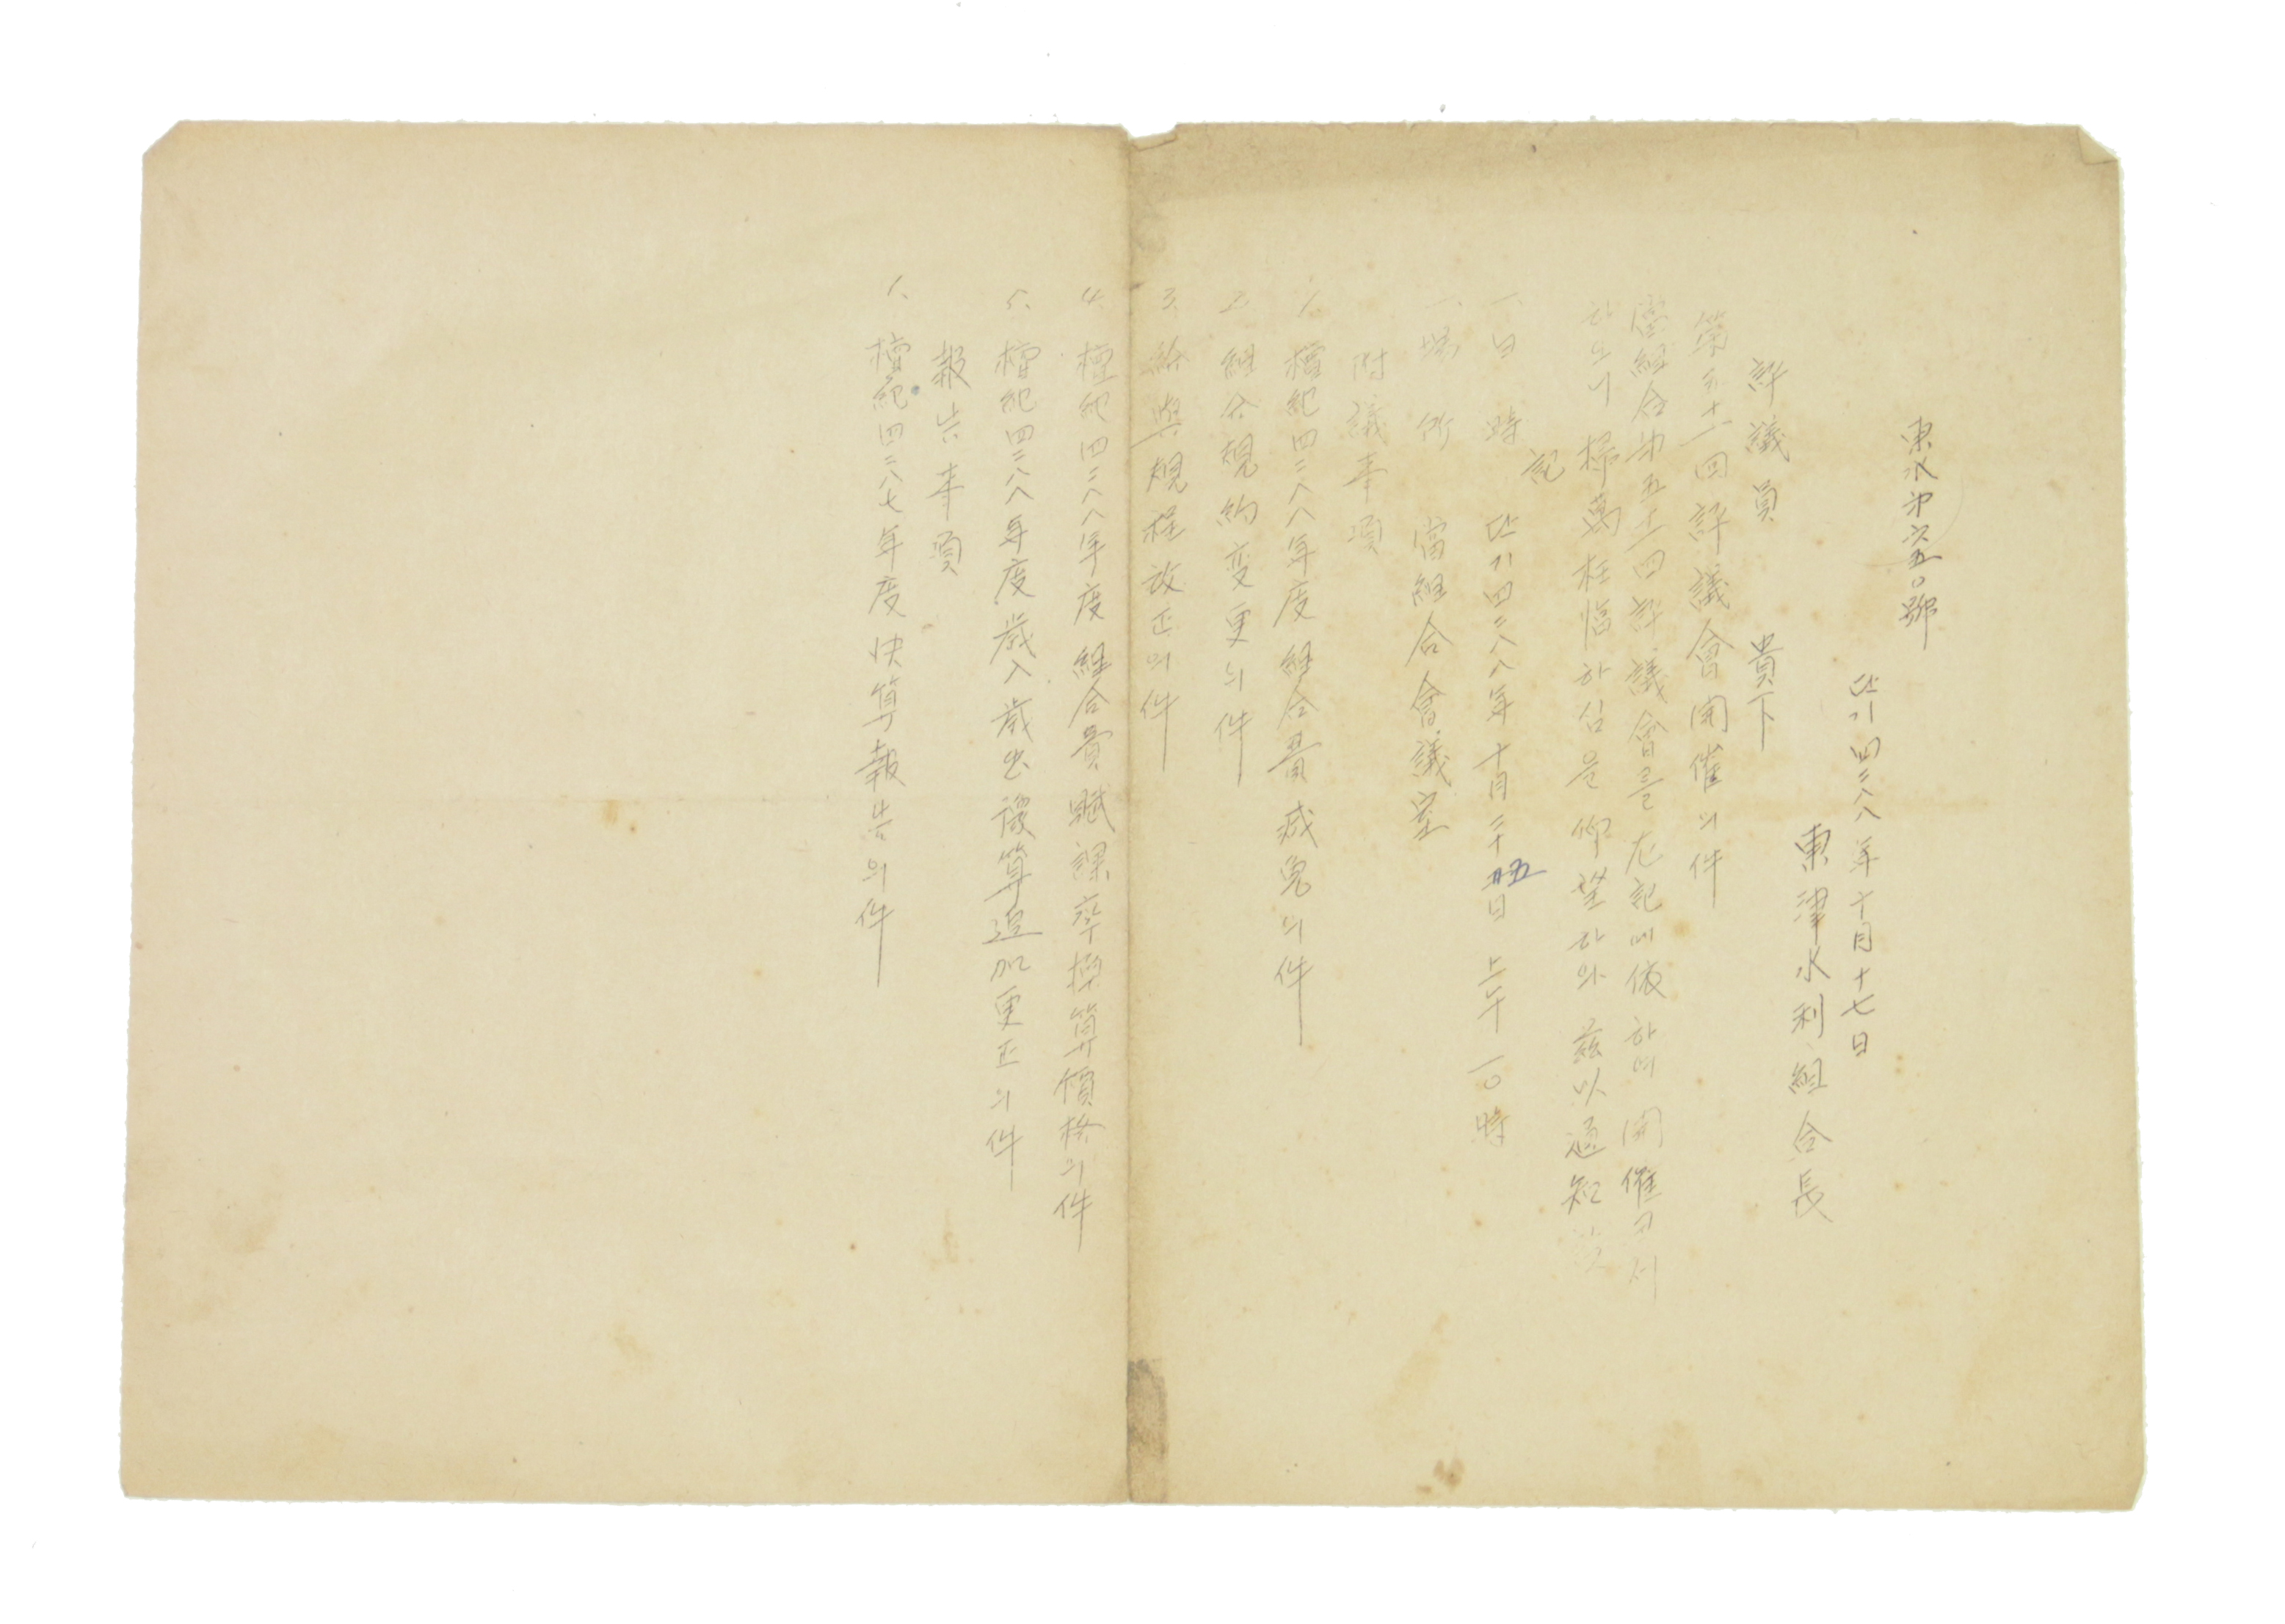 東水第六五〇號
단기 四二八八年 十月 十七日
東津水利組合長
評議員 貴下
第五十一回 評議會 開催의 件
當組合 第五十一回 評議會를 左記에 依하여 開催코저
하오니 掃萬枉臨하심을 仰望하와 玆以通知함
記
一. 日時 단기 四二八八年 十月 二十五日 上午 一〇時
一. 場所 當組合 會議室
附議事項
1. 檀紀 四二八八年度 組合費 減免의 件
2. 組合規約 変更의 件
3. 給與規程 改正의 件
4. 檀紀 四二八八年度 組合費 賦課率 換算價格의 件
5. 檀紀 四二八八年度 歲入歲出 豫算 追加更正의 件
報告事項
1. 檀紀 四二八七年度 決算報告의 件